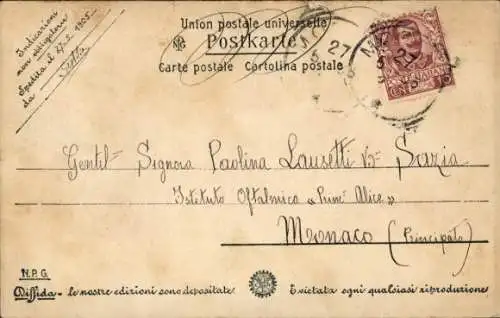 Indicazioni
non obbligatorie
Spedita il 27-5-1905
da
Union postale universelle
Postkarte
Carte postale Cartolina postale
27
5
Gentil- Signora Paolina Lausetti
Istituto Oftalmico "Princ Alice"
Monaco (Principato)
N.P.G.
Diffida - le nostre edizioni sono depositate
E vietata ogni qualsiasi riproduzione